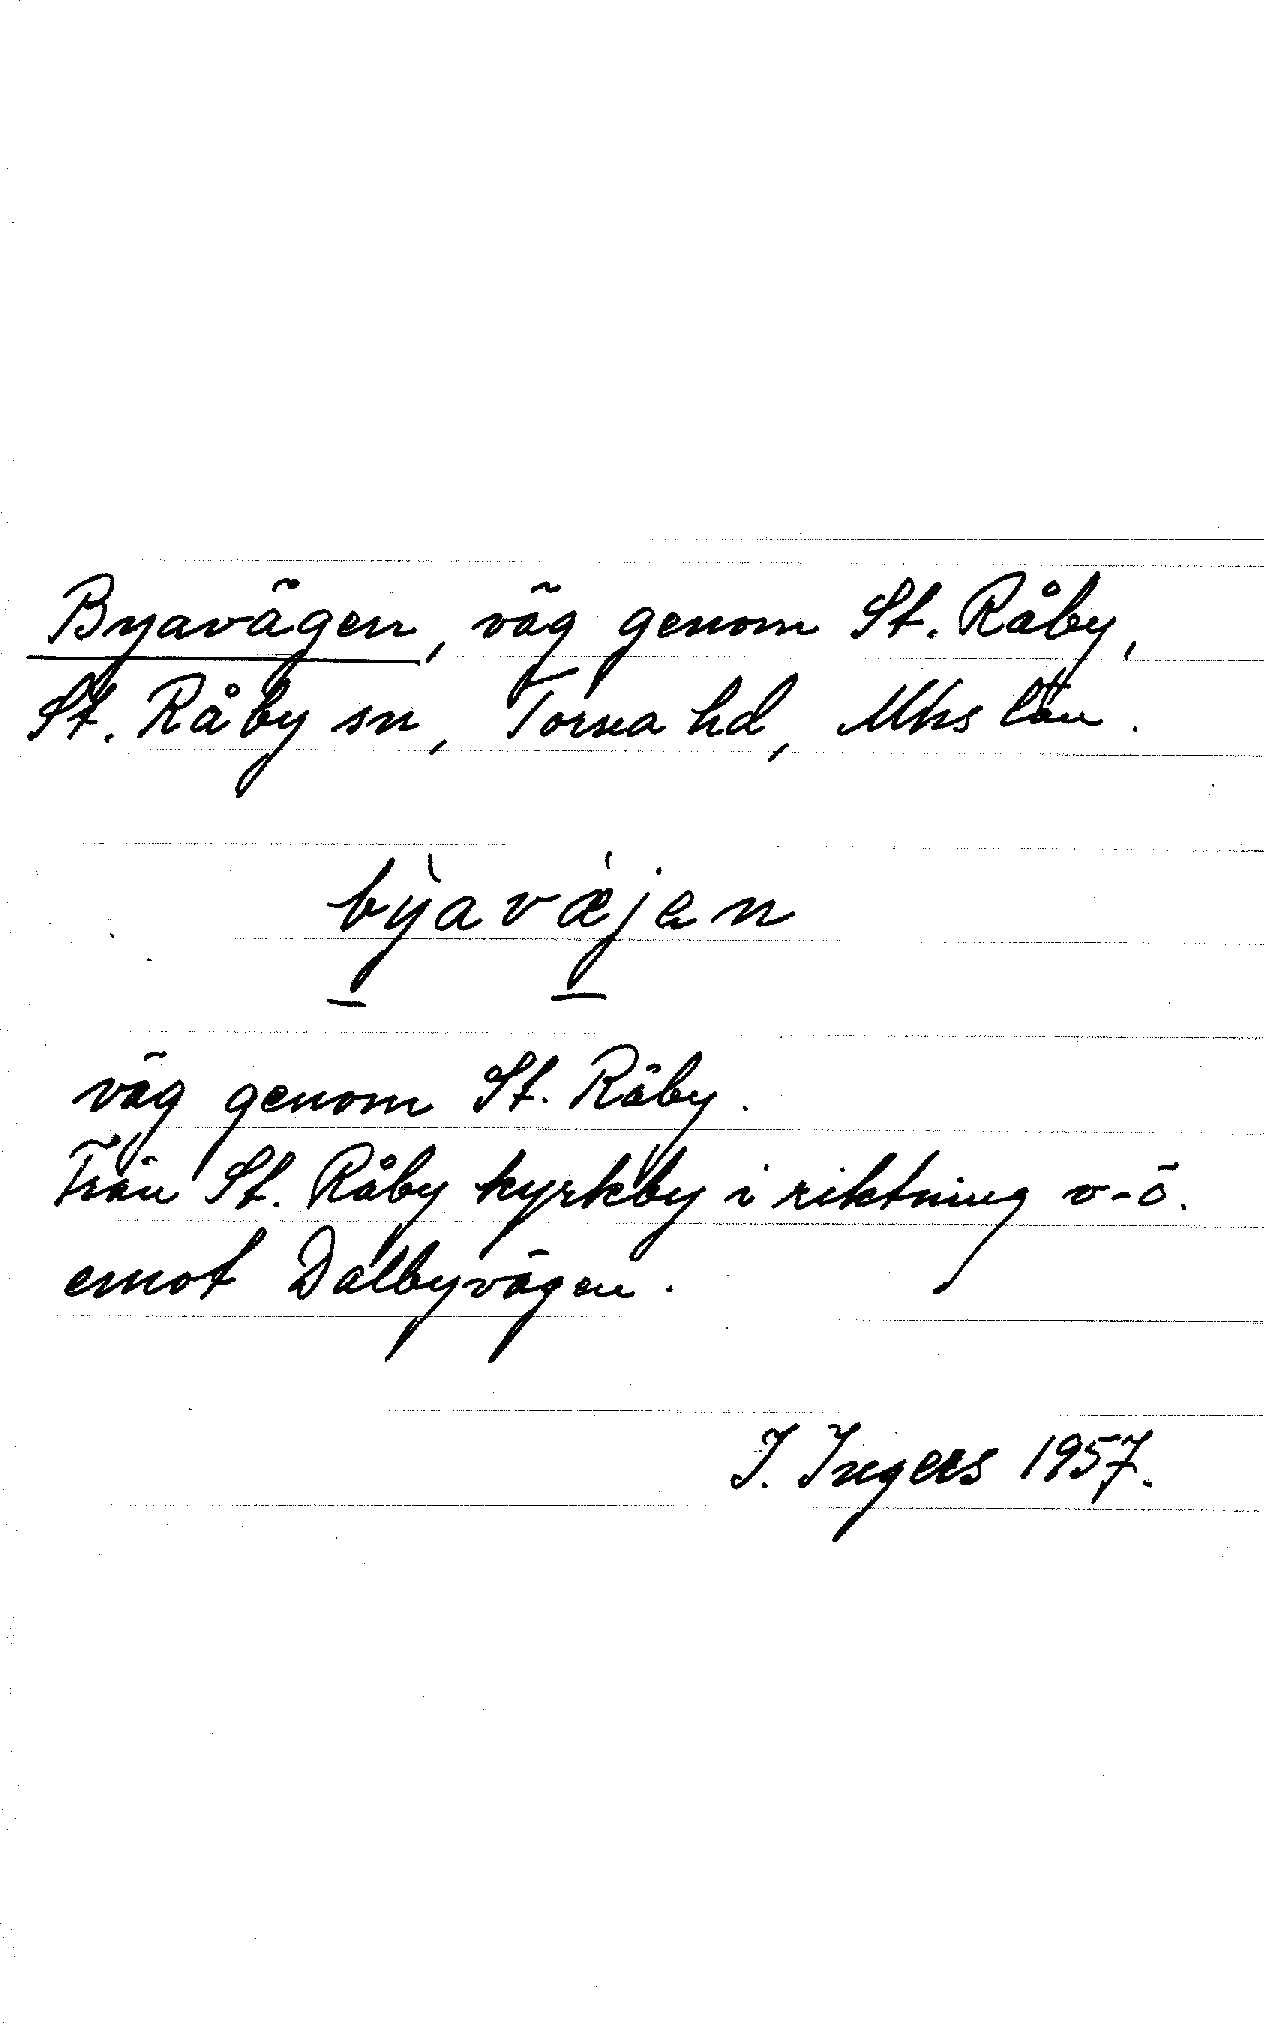 Byavägen, väg genom St. Råby,
St. Råby sn, Torna hd, Mhs län.
bỳavæ̀jen
väg genom St. Råby.
Från St. Råby kyrkby i riktning v-ö.
emot Dalbyvägen.
I. Ingers 1957.